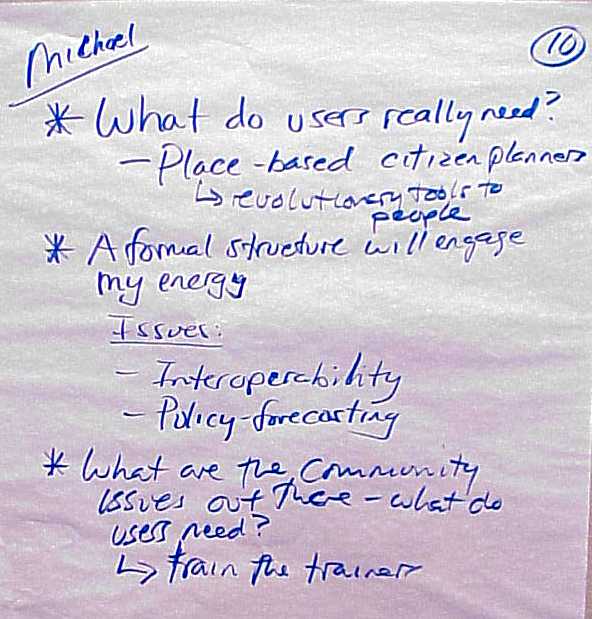 Michael
10
* What do users really need?
- Place-based citizen planners
↳ revolutionary tools to
people
* A formal structure will engage
my energy
Issues:
- Interoperability
- Policy-forecasting
* What are the community
issues out there - what do
users need?
↳ train the trainers